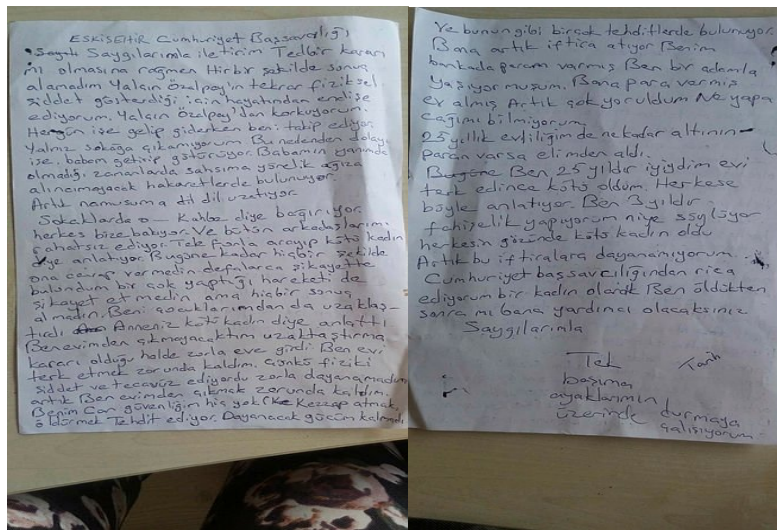 ESKİŞEHİR Cumhuriyet Başsavcılığı
Saygılarımla iletirim Tedbir kararı
mı olmasına rağmen Hiçbir şekilde sonuç
alamadım Yalçın Özalpay'ın tekrar fiziksel
şiddet gösterdiği için hayatımdan endişe
ediyorum. Yalçın Özalpay'dan korkuyorum.
Hergün işe gelip giderken beni takip ediyor.
Yalnız sokağa çıkamıyorum Bu nedenden dolayı
işe babam getirip götürüyor. Babamın yanımda
olmadığı zamanlarda şahsıma yönelik ağıza
alınamayacak hakaretlerde bulunuyor.
Artık namusuma dil dil uzatıyor.
Sokaklarda o— Kahbe diye bağırıyor
herkes bize bakıyor. Ve bütün arkadaşlarımı
rahatsız ediyor. Telefonla arayıp kötü kadın
diye anlatıyor. Bugüne kadar hiçbir şekilde
ona cevap vermedim. defalarca şikayette
bulundum bir çok yaptığı hareketi de
şikayet etmedim ama hiçbir sonuç
almadım. Beni çocuklarımdan da uzaklaş-
tırdı Anneniz kötü kadın diye anlattı
Ben evimden çıkmayacaktım uzaklaştırma
kararı olduğu halde zorla eve girdi Ben evi
terk etmek zorunda kaldım. Çünkü fiziki
şiddet ve tecavüz ediyordu zorla dayanamadım
artık Ben evimden çıkmak zorunda kaldım.
Benim Can güvenliğim hiç yok Kezzap atmak,
öldürmek Tehdit ediyor. Dayanacak gücüm kalmadı
Ve bunun gibi birçok tehditlerde bulunuyor.
Bana artık iftira atıyor Benim
bankada param varmış Ben bir adamla
yaşıyormuşum. Bana para vermiş
ev almış Artık çok yoruldum Ne yapa
cağımı bilmiyorum.
25 yıllık evliliğimde nekadar altının
paran varsa elimden aldı.
Bugüne Ben 25 yıldır iyiydim evi
terk edince kötü oldum. Herkese
böyle anlatıyor. Ben 3 yıldır
fahişelik yapıyorum niye söylüyor
herkesin gözünde kötü kadın oldu
Artık bu iftiralara dayanamıyorum.
Cumhuriyet başsavcılığından rica
ediyorum bir kadın olarak Ben öldükten
sonra mı bana yardımcı olacaksınız
Saygılarımla
Tarih
Tek
başıma
ayaklarımın
üzerinde durmaya
çalışıyorum